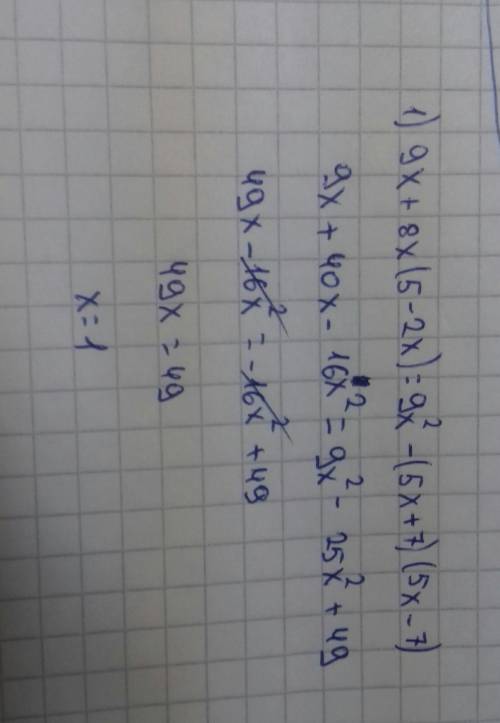 1) 9x + 8x(5-2x) = 9x² - (5x+7)(5x-7)
9x + 40x - 16x² = 9x² - 25x² + 49
49x - 16x² = -16x² + 49
49x = 49
x = 1